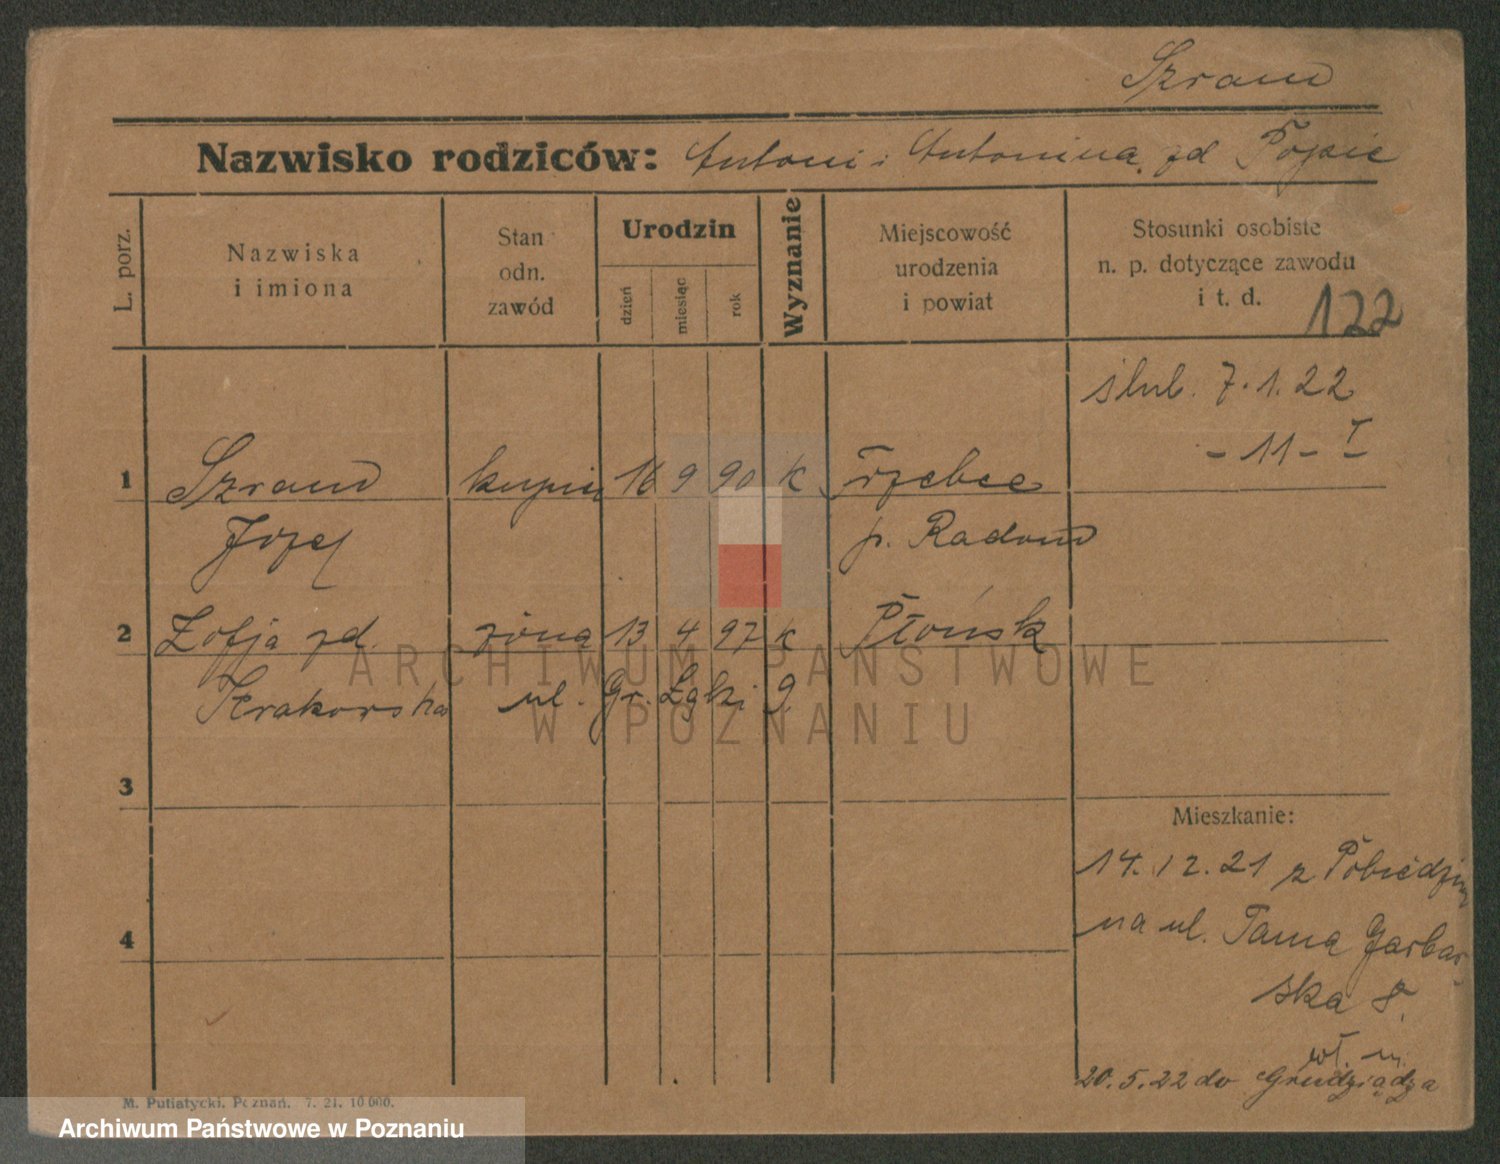 Szram
Nazwisko rodziców: Antoni i Antonina zd
L. porz.
Nazwiska
i imiona
Stan
odn.
zawód
Urodzin
dzień
miesiąc
rok
Wyznanie
Miejscowość
urodzenia
i powiat
Stosunki osobiste
n. p. dotyczące zawodu
i t. d.
122
ślub. 7.1.22
- 11 - I
1 Szram kupiec 16 9 90 k Trzebce
Józef p. Radom
2 Zofja zd. żona 13 4 97 k Płońsk
Krakowska ul. Gr. Łąki 9.
3
Mieszkanie:
14.12.21 z
na ul. Tama Garbar
4
ska 8.
wł. m.
20.5.22 do Grudziądza
M. Putiatycki. Poznań. 7. 21. 10 000.
ARCHIWUM PAŃSTWOWE
W POZNANIU
Archiwum Państwowe w Poznaniu